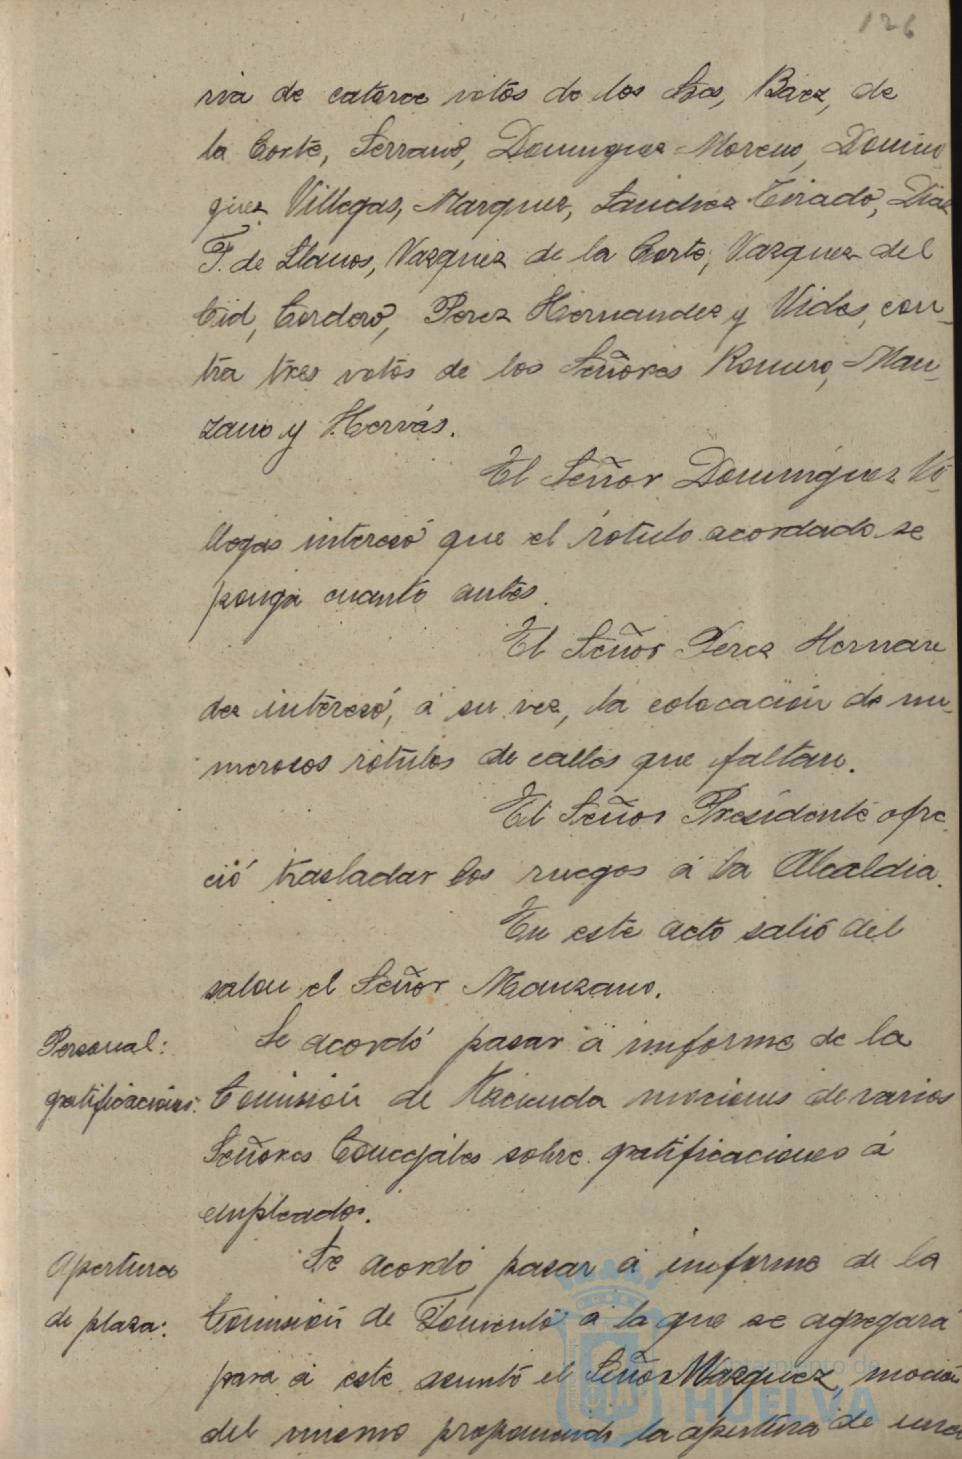 126
ria de catorce votos de los Sres, Báez, de
la Corte, Serrano, Dominguez Moreno, Domin
guez Villegas, Marquez, Sanchez Tirado, Diaz
F. de Llanos, Vazquez de la Corte, Vazquez del
Cid, Cordero, Perez Hernandez y Vides, con-
tra tres votos de los Señores Romero, Man-
zano y Hervás.
El Señor Domínguez Vi-
llegas interesó que el rótulo acordado se
ponga cuanto antes.
El Señor Perez Hernan
dez interesó, á su vez, la colocación de nu-
merosos rótulos de calles que faltan.
El Señor Presidente ofre-
ció trasladar los ruegos á la Alcaldia.
En este acto salió del
salon el Señor Manzano.
Personal: Se acordó pasar á informe de la
gratificaciones: Comisión de Hacienda mociones de varios
Señores Concejales sobre gratificaciones á
empleados.
Apertura Se acordó pasar á informe de la
de plaza: Comisión de Fomento á la que se agregará
para á este asunto el Señor Vazquez, moción
del mismo proponiendo la apertura de una
Ayuntamiento de
HUELVA